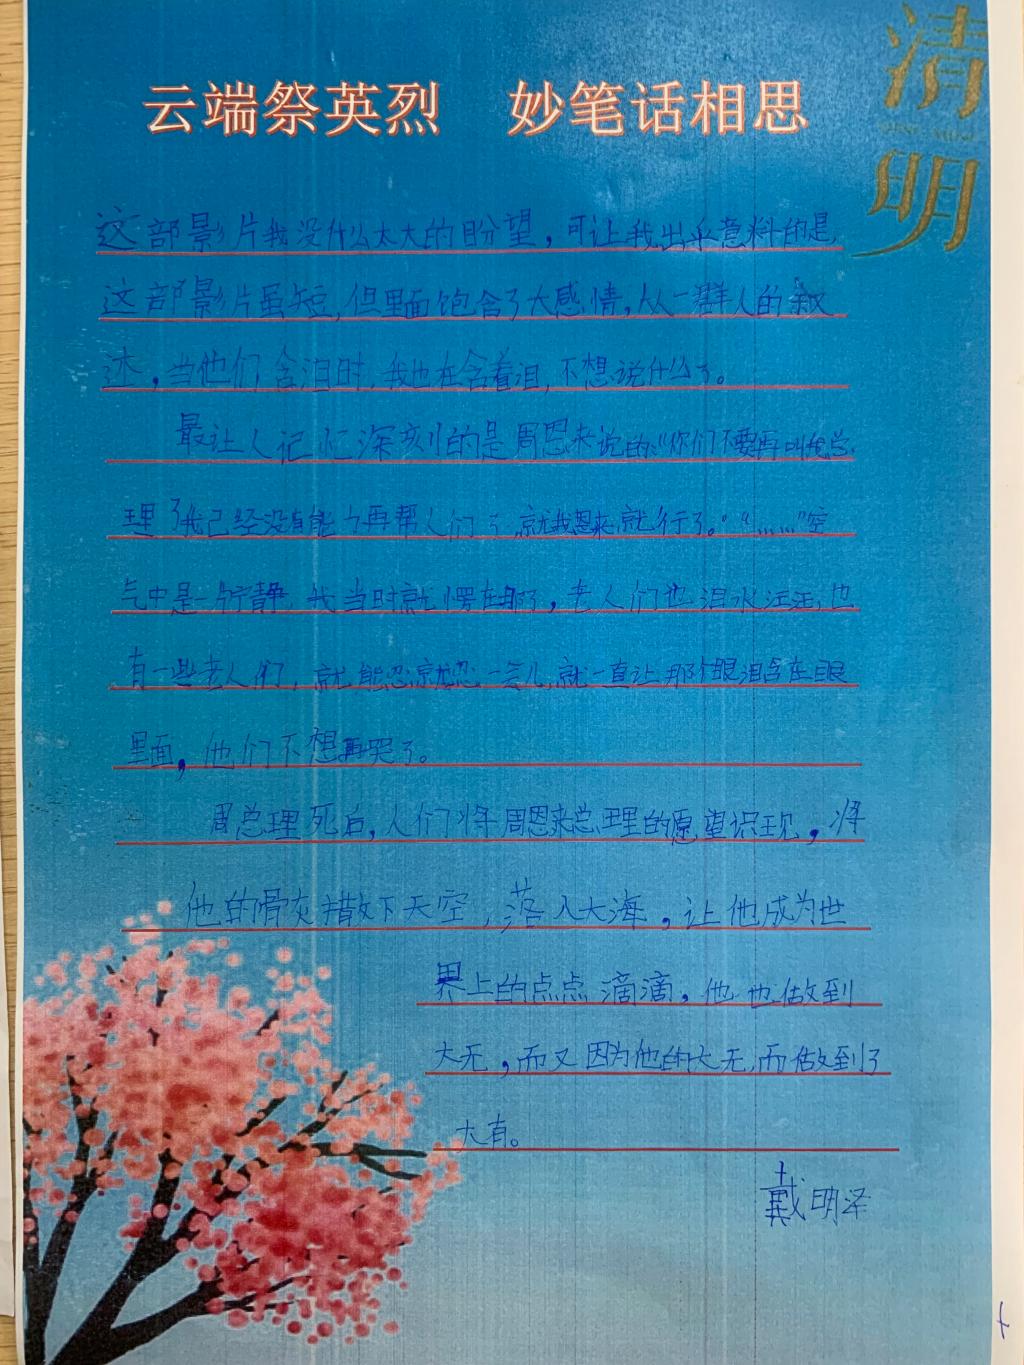 云端祭英烈 妙笔话相思
清
明
这部影片我没什么太大的盼望，可让我出乎意料的是，
这部影片虽短，但里面饱含了大感情，从一群人的叙
述，当他们含泪时，我也在含着泪，不想说什么了。
最让人记忆深刻的是周恩来说的：“你们不要再叫我总
理了我已经没有能力再帮人们了，就我恩来就行了。”“……”空
气中是一片宁静，我当时就愣在那了，老人们也泪水汪汪，也
有一些老人们，就能忍就忍一会儿，就一直让那个眼泪含在眼
里面，他们不想再哭了。
周总理死后，人们将周恩来总理的愿望识现，将
他的骨灰撒下天空，落入大海，让他成为世
界上的点点滴滴，他也做到
大无，而又因为他的大无，而做到了
大有。
戴明泽